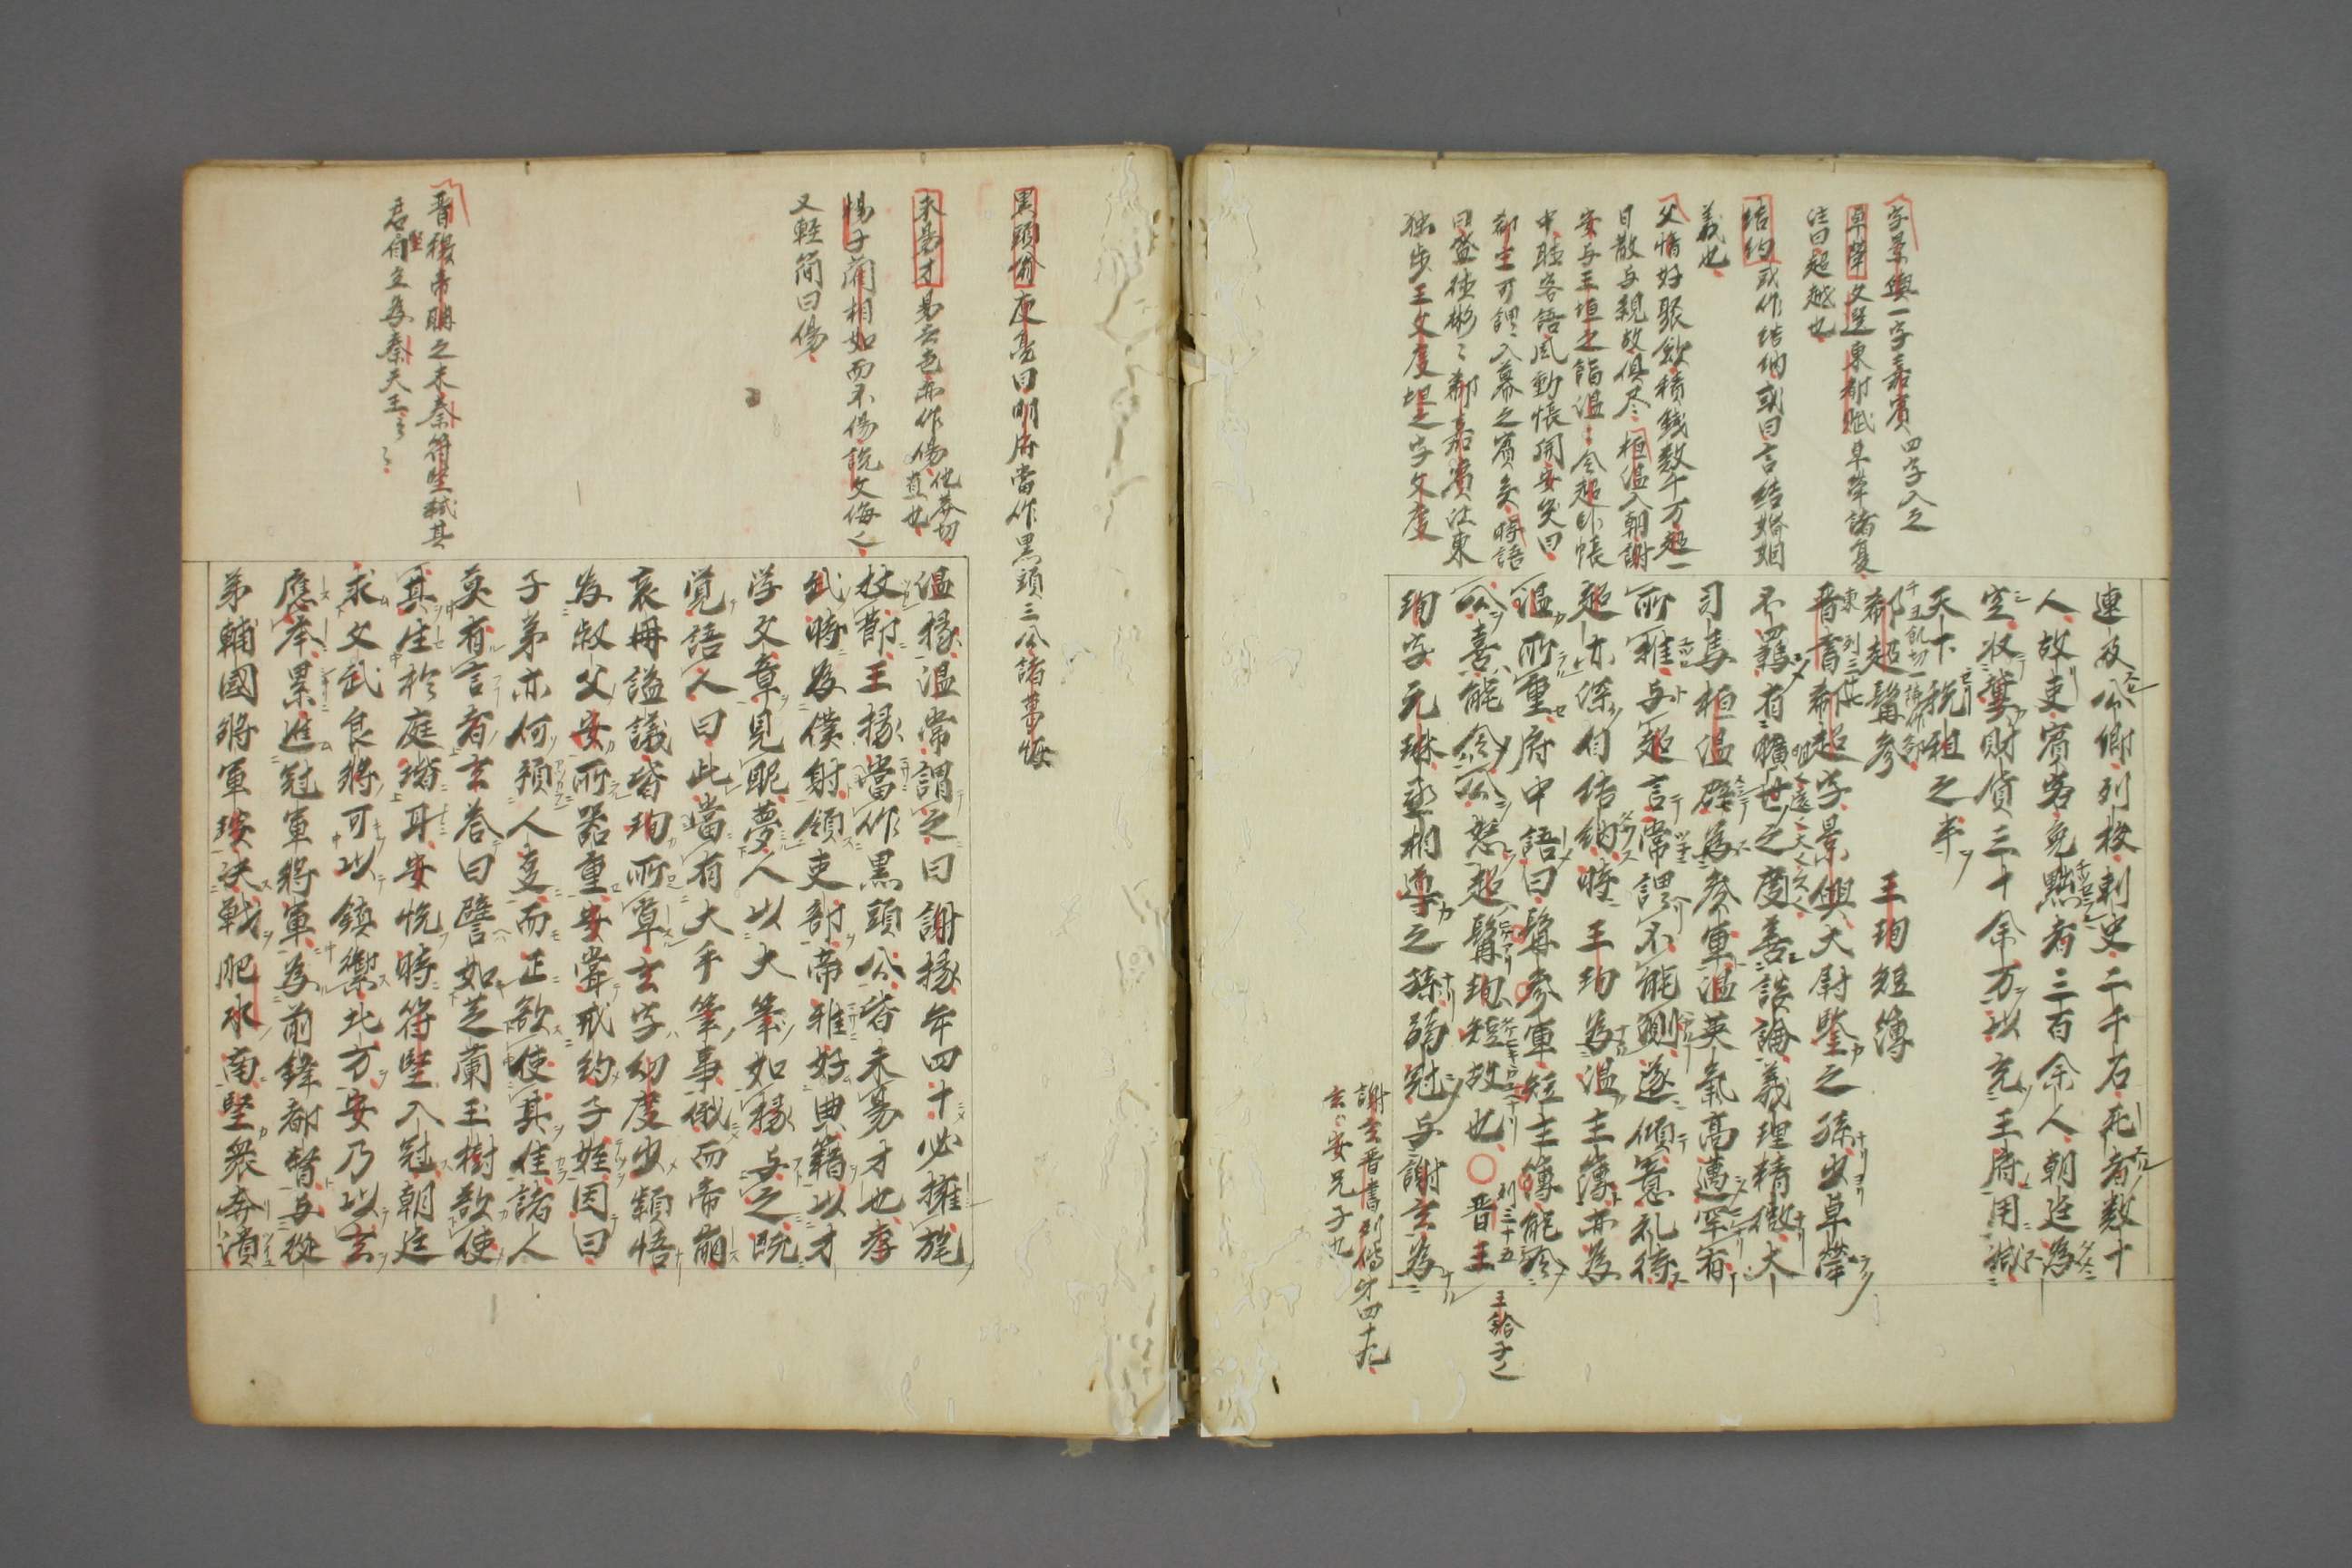 字景興一字嘉賓四字入之
卓犖文選東都賦卓犖諸夏
注曰超越也
結納或作結納或曰言結婚姻
義也
父愔好聚斂積錢数千万超一
日散与親故俱尽桓温入朝謝
安与王坦之詣温〻令超卧帳
中聴客語風動帳開安笑曰
郗生可謂入幕之賓矣時語
曰盛徳彬〻郗嘉賓江東
独歩王文度坦之字文度
連及公卿列校刺史二千石死者数十
人故吏賓客免黜者三百余人朝廷為
空收冀財貨三十余万以充王府用減
天下税租之半
郗超髯參 王珣短簿
晋書郗超字景興大尉鑒之孫少卓犖
不羈有曠世之度善談論義理精微大
司馬桓温辟為參軍温英氣高邁罕有
所推与超言常謂不能測遂傾意礼待
超亦深自結納時王珣為温主簿亦為
温所重府中語曰髯參軍短主簿能令
公喜能令公怒超髯珣短故也〇晋王
列三十五
王洽子也
珣字元琳丞相導之孫弱冠与謝玄為
謝玄晋書列傳第四十九
玄安兄子也
黒頭公庾亮曰明府當作黒頭三公諸葛恢
未易才易去也亦作傷
他莽切
直也
惕子蘭相如而不傷説文侮也
又軽簡曰傷
晋穆帝明之末秦符生弑其
君自立為秦天王云〻
温掾温常謂之曰謝掾年四十必擁旄
杖節王掾當作黒頭公皆未易才也孝
武時為僕射領吏部帝雅好典籍以才
学文章見昵夢人以大筆如椽与之既
覚語人曰此當有大手筆事俄而帝崩
哀冊謚議皆珣所草玄字幼度少穎悟
為叔父安所器重安嘗戒約子姪因曰
子弟亦何預人事而正欲使其佳諸人
莫有言者玄荅曰譬如芝蘭玉樹欲使
其生於庭堦耳安悦時符堅入冦朝廷
求文武良將可以鎮禦北方安乃以玄
應挙累進冠軍將軍為前鋒都督与従
弟輔國將軍琰決戦肥水南堅衆奔潰